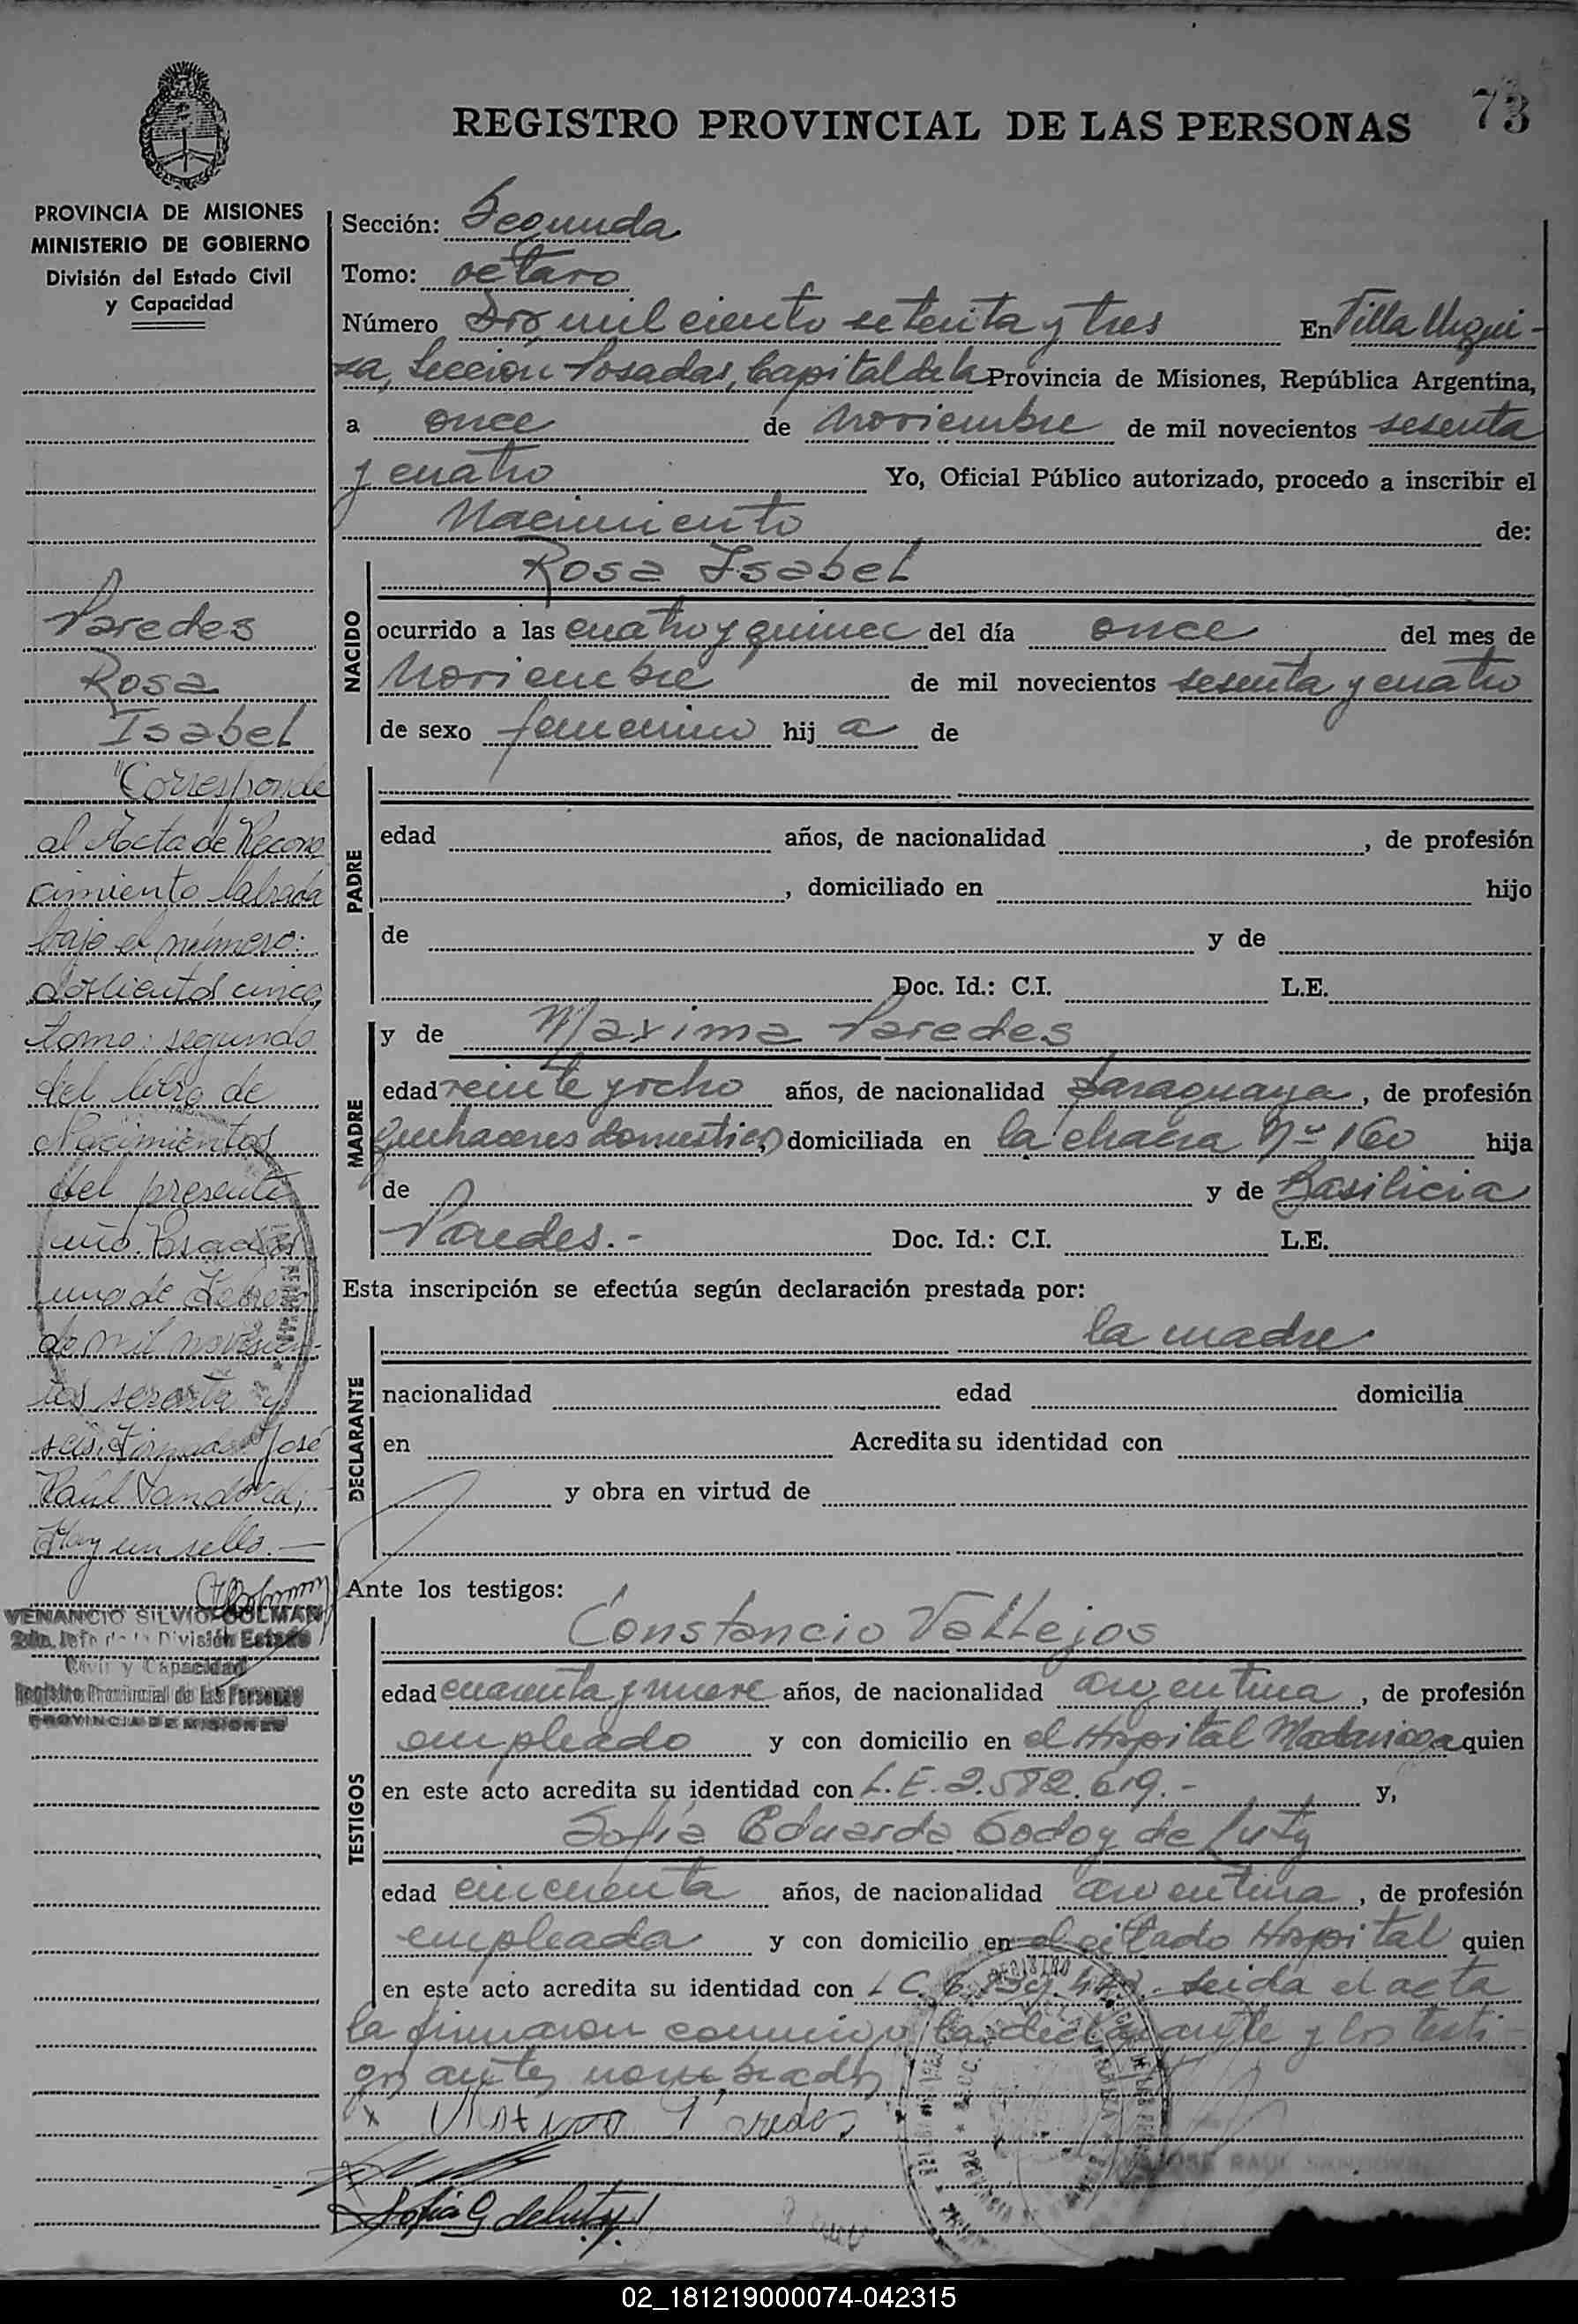 73
REGISTRO PROVINCIAL DE LAS PERSONAS
PROVINCIA DE MISIONES
MINISTERIO DE GOBIERNO
División del Estado Civil
y Capacidad
Paredes
Rosa
Isabel
"Corresponde
al Acta de Recono
cimiento labrada
bajo el número:
doscientos cinco,
tomo: segundo
del libro de
Nacimientos
del presente
año. Posadas,
uno de Febrero
de mil novecien-
tos sesenta y
seis. Firmado: José
Raúl Sandoval;
Hay un sello.—
VENANCIO SILVIO COLMAN
2do. Jefe de la División Estado
Civil y Capacidad
Registro Provincial de las Personas
PROVINCIA DE MISIONES
Sección: Segunda
Tomo: octavo
Número Dos mil ciento setenta y tres En Villa Urqui-
za, Sección Posadas, Capital de la Provincia de Misiones, República Argentina,
a once de Noviembre de mil novecientos sesenta
y cuatro Yo, Oficial Público autorizado, procedo a inscribir el
Nacimiento de:
NACIDO
Rosa Isabel
ocurrido a las cuatro y quince del día once del mes de
Noviembre de mil novecientos sesenta y cuatro
de sexo femenino hij a de
PADRE
edad años, de nacionalidad , de profesión
, domiciliado en hijo
de y de
Doc. Id.: C.I. L.E.
MADRE
y de Maxima Paredes
edad veinte y ocho años, de nacionalidad paraguaya, de profesión
quehaceres domesticos, domiciliada en la chacra Nº 160 hija
de y de Basilicia
Paredes.- Doc. Id.: C.I. L.E.
Esta inscripción se efectúa según declaración prestada por:
DECLARANTE
la madre
nacionalidad edad domicilia
en Acredita su identidad con
y obra en virtud de
Ante los testigos:
TESTIGOS
Constancio Vallejos
edad cuarenta y nueve años, de nacionalidad argentina, de profesión
empleado y con domicilio en el Hospital Madariaga quien
en este acto acredita su identidad con L.E. 2.582.619.- y,
Sofia Eduarda Godoy de Luty
edad cincuenta años, de nacionalidad argentina, de profesión
empleada y con domicilio en el citado Hospital quien
en este acto acredita su identidad con L.C. Leida el acta
la firmaron conmigo la declarante y los testi-
gos antes nombrados
x Maxima Paredes
JOSE RAUL SANDOVAL
Sofia G de Luty
02_181219000074-042315